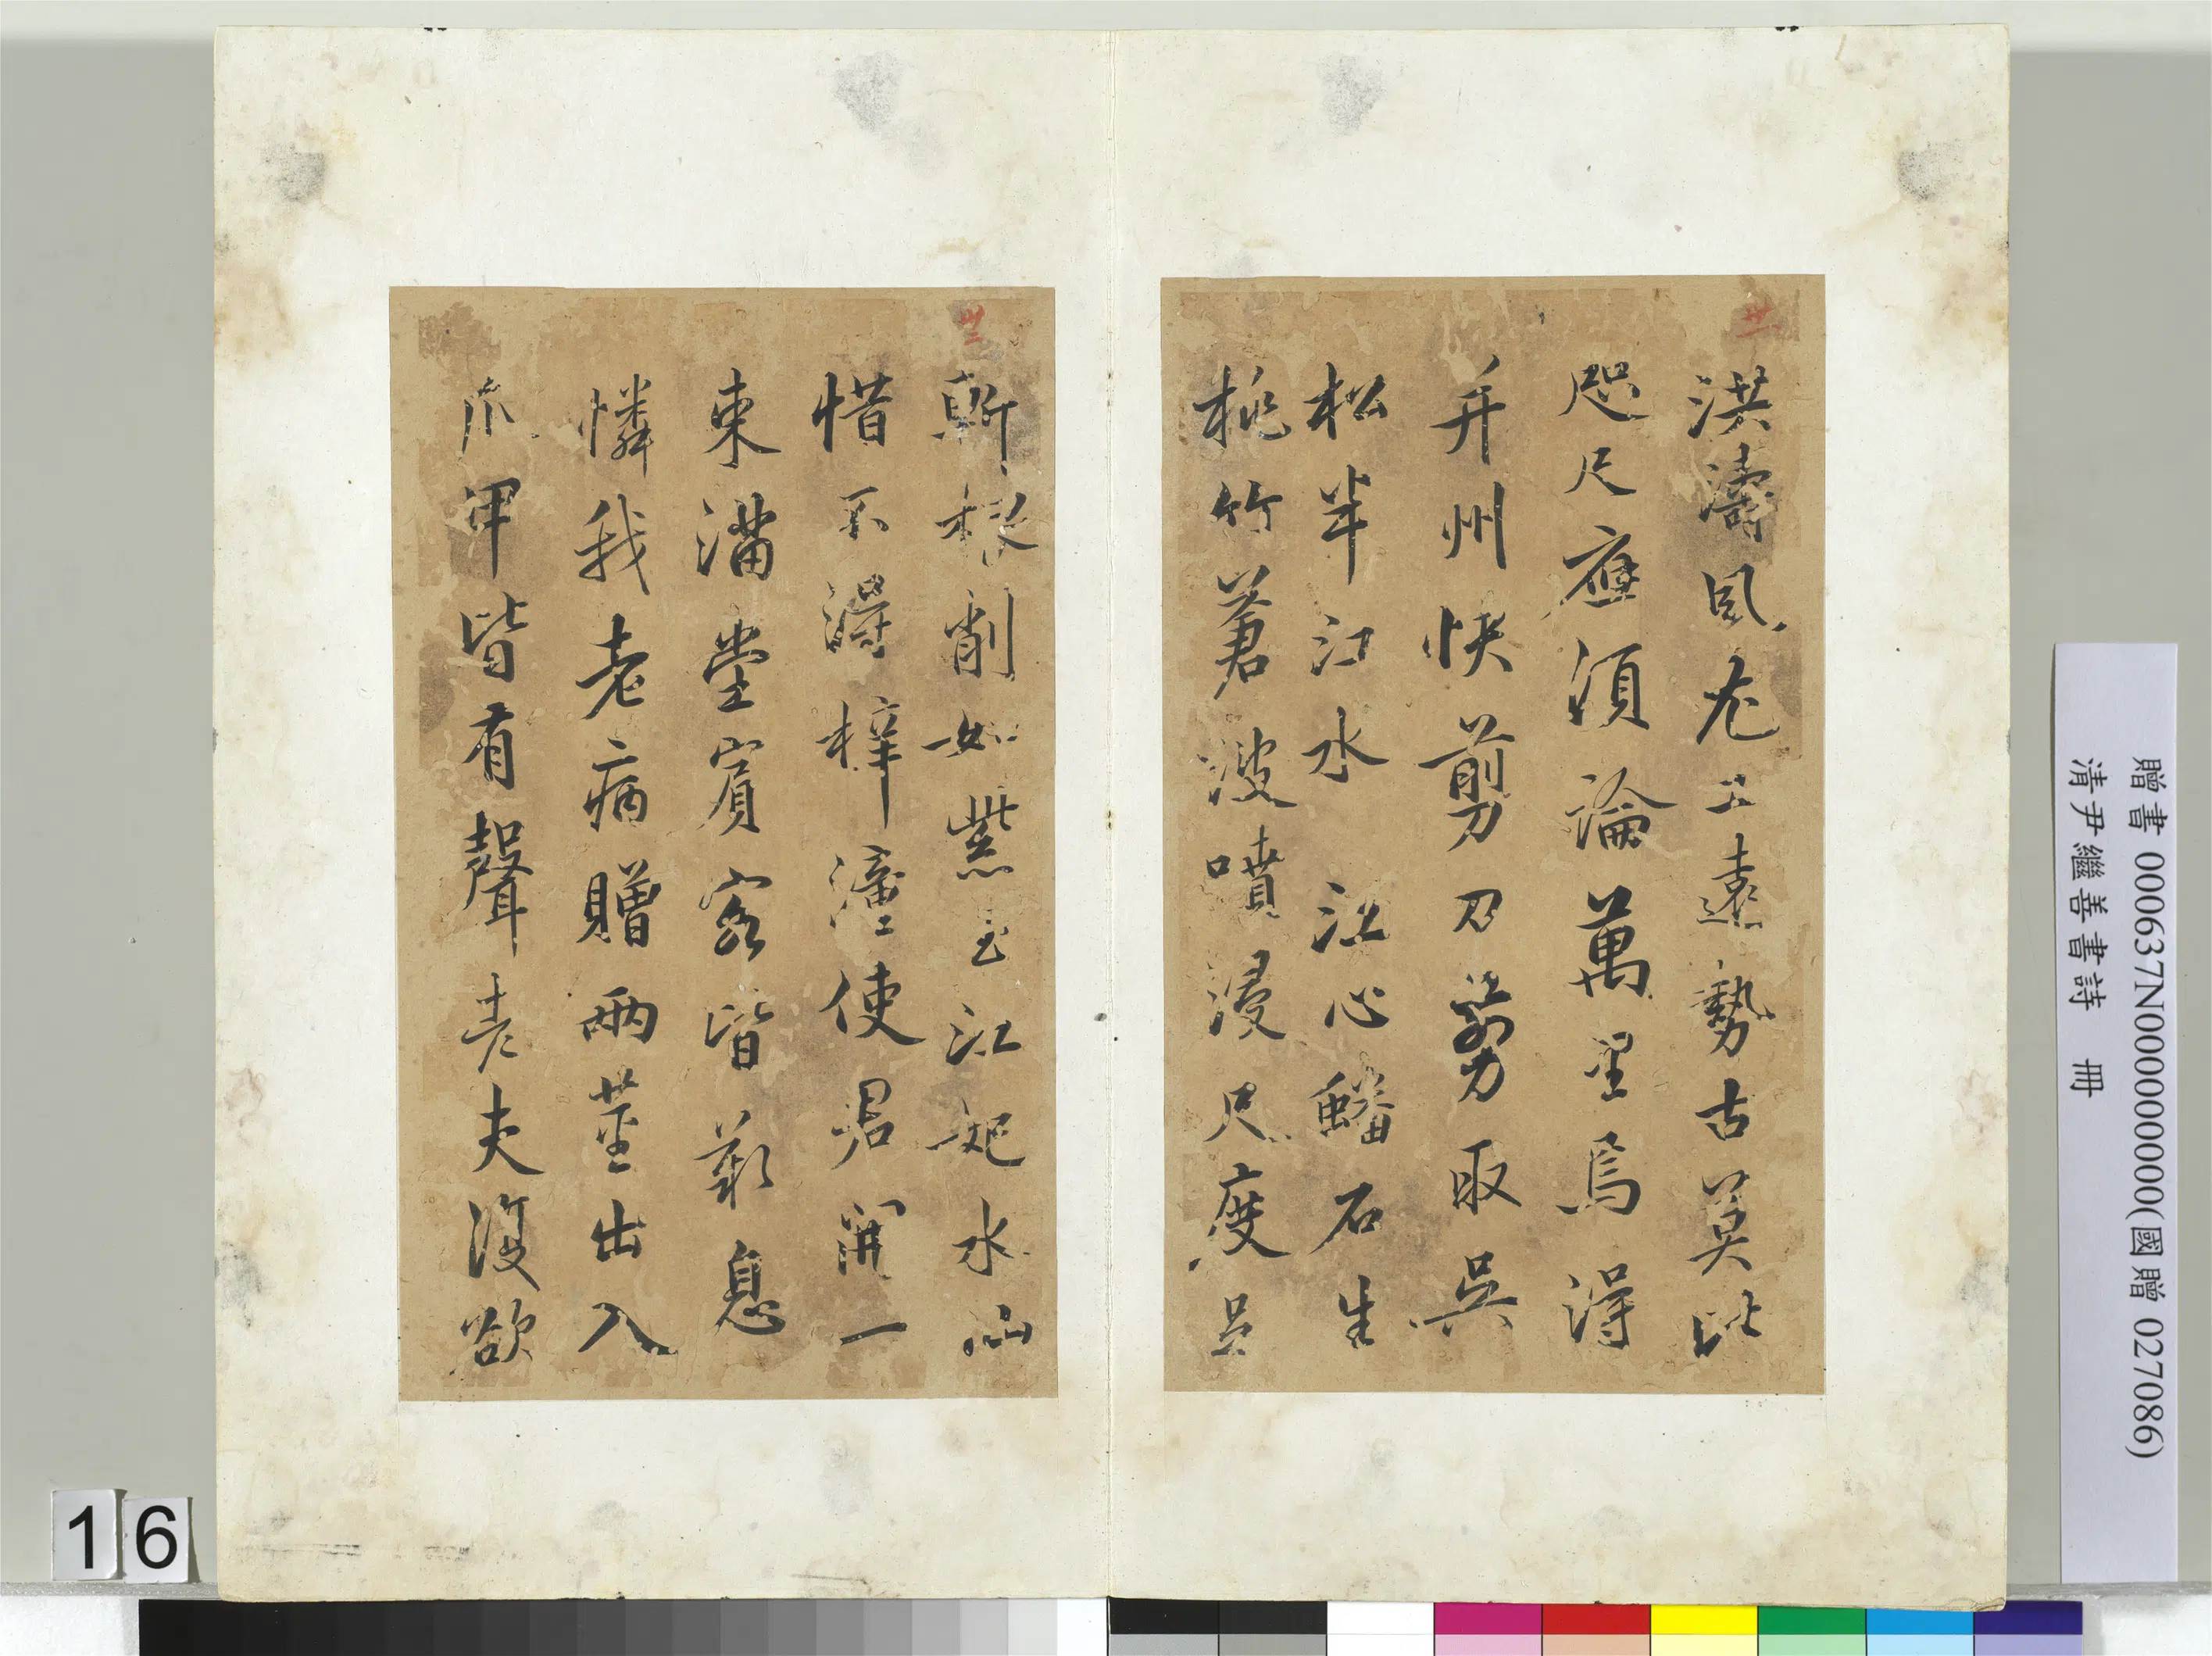 卅一
洪濤風尤工遠勢古莫比
咫尺應須論萬里焉得
并州快剪刀剪取吳
松半江水 江心蟠石生
桃竹蒼波噴浸尺度足
卅二
斬根削如紫玉江妃水仙
惜不得梓潼使君開一
束滿堂賓客皆歎息
憐我老病贈兩莖出入
爪甲皆有聲老夫復欲
贈書 000637N000000000(國贈 027086)
清尹繼善書詩 冊
16